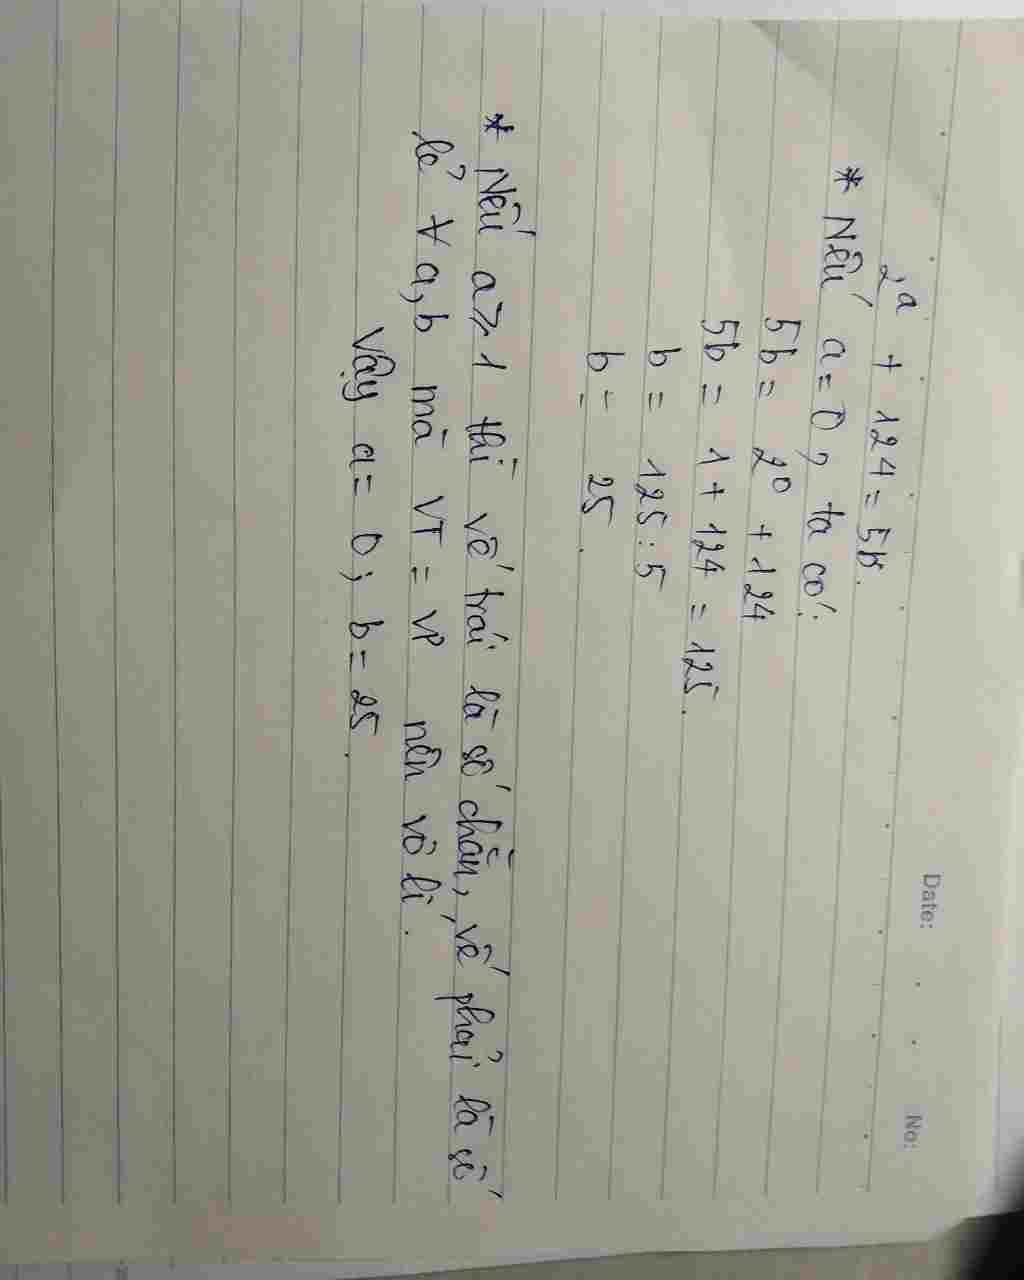 Date: No:
2^a + 124 = 5b.
* Nếu a = 0, ta có:
5b = 2^0 + 124
5b = 1 + 124 = 125.
b = 125 : 5
b = 25.
* Nếu a ⩾ 1 thì vế trái là số chẵn, vế phải là số
lẻ ∀ a, b mà VT = VP nên vô lí.
Vậy a = 0; b = 25.